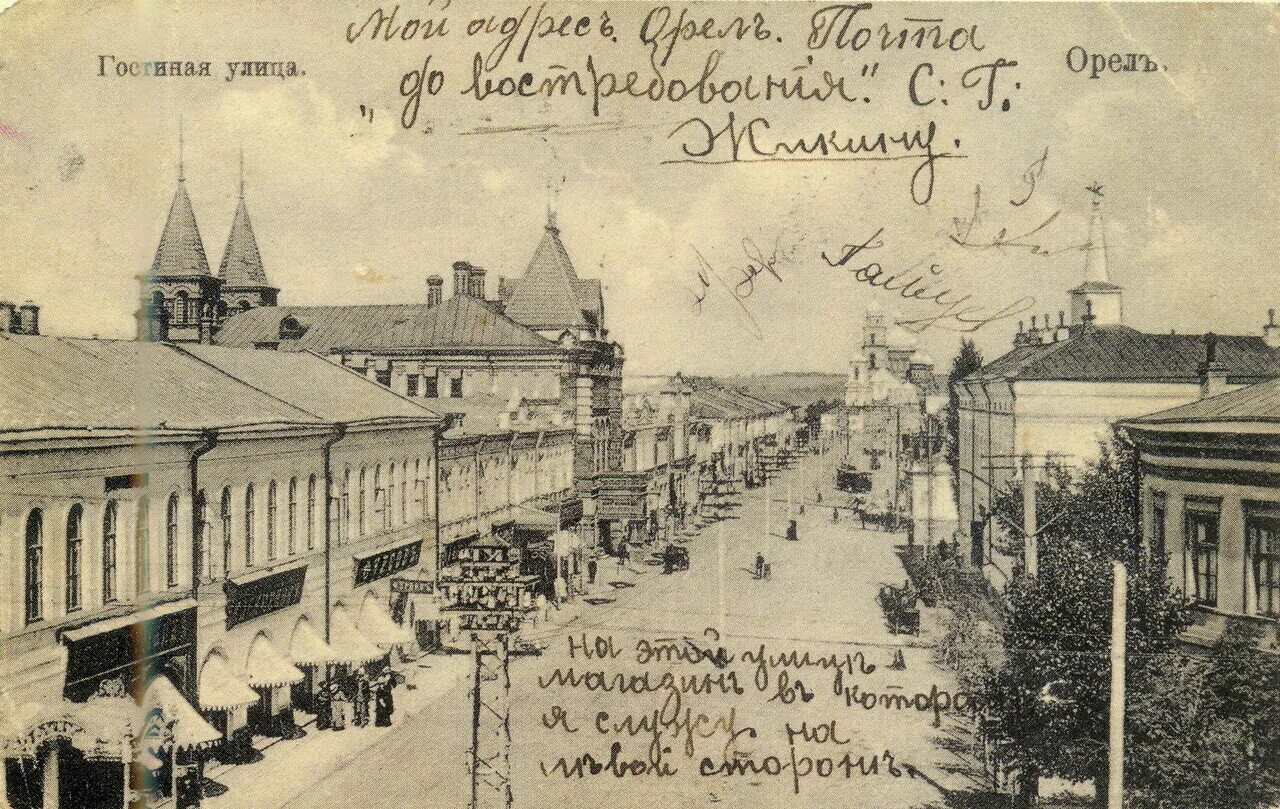 Мой адресъ. Орелъ. Почта
Гостиная улица.
Орелъ.
„до востребованія". С. Г.
Жикину.
на этой улицѣ
магазинъ въ которо
я служу на
лѣвой сторонѣ.